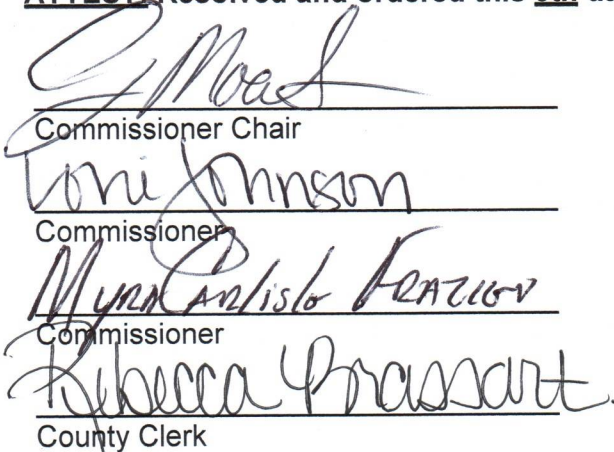 ATTEST: Resolved and ordered this
Commissioner Chair
Toni Johnson
Commissioner
Myra Carlisle Frazier
Commissioner
Rebecca Brassart
County Clerk